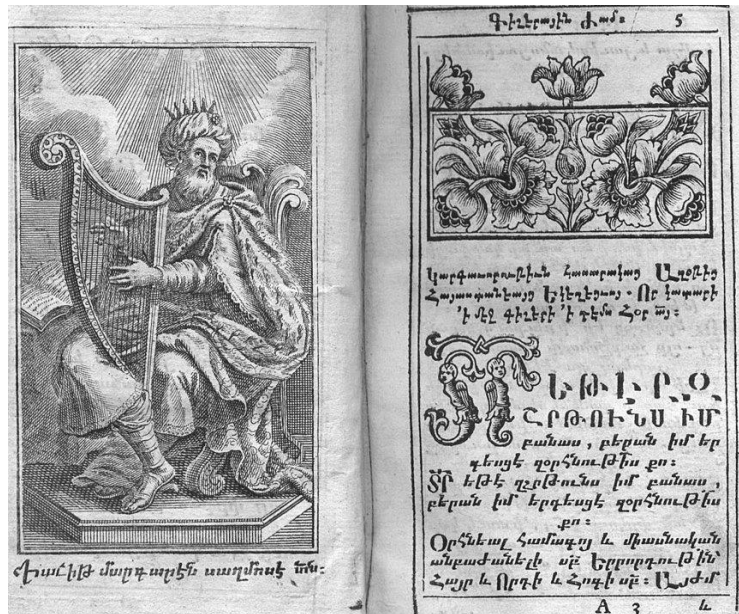 Դաւիթ մարգարէն սաղմոսէ
Գիշերային Ժամ։ 5
Կարգաւորութիւն հասարակաց Աղօթից
Հայաստանեայց Եկեղեցւոյ. Որ կատարի
՚ի մէջ գիշերի ՚ի դէմս Հօր այ։
ՏՐ ԵԹԷ Զ
ՇՐԹՈՒՆՍ ԻՄ
բանաս , բերան իմ եր
գեսցէ զօրհնութիս քո։
Տր եթէ զշրթունս իմ բանաս ,
բերան իմ երգեսցէ զօրհնութիս
քո։
Օրհնեալ համագոյ և միասնական
անբաժանելի սբ Երրորդութին՝
Հայր և Որդի և Հոգի սբ։ Այժմ
A 3 և